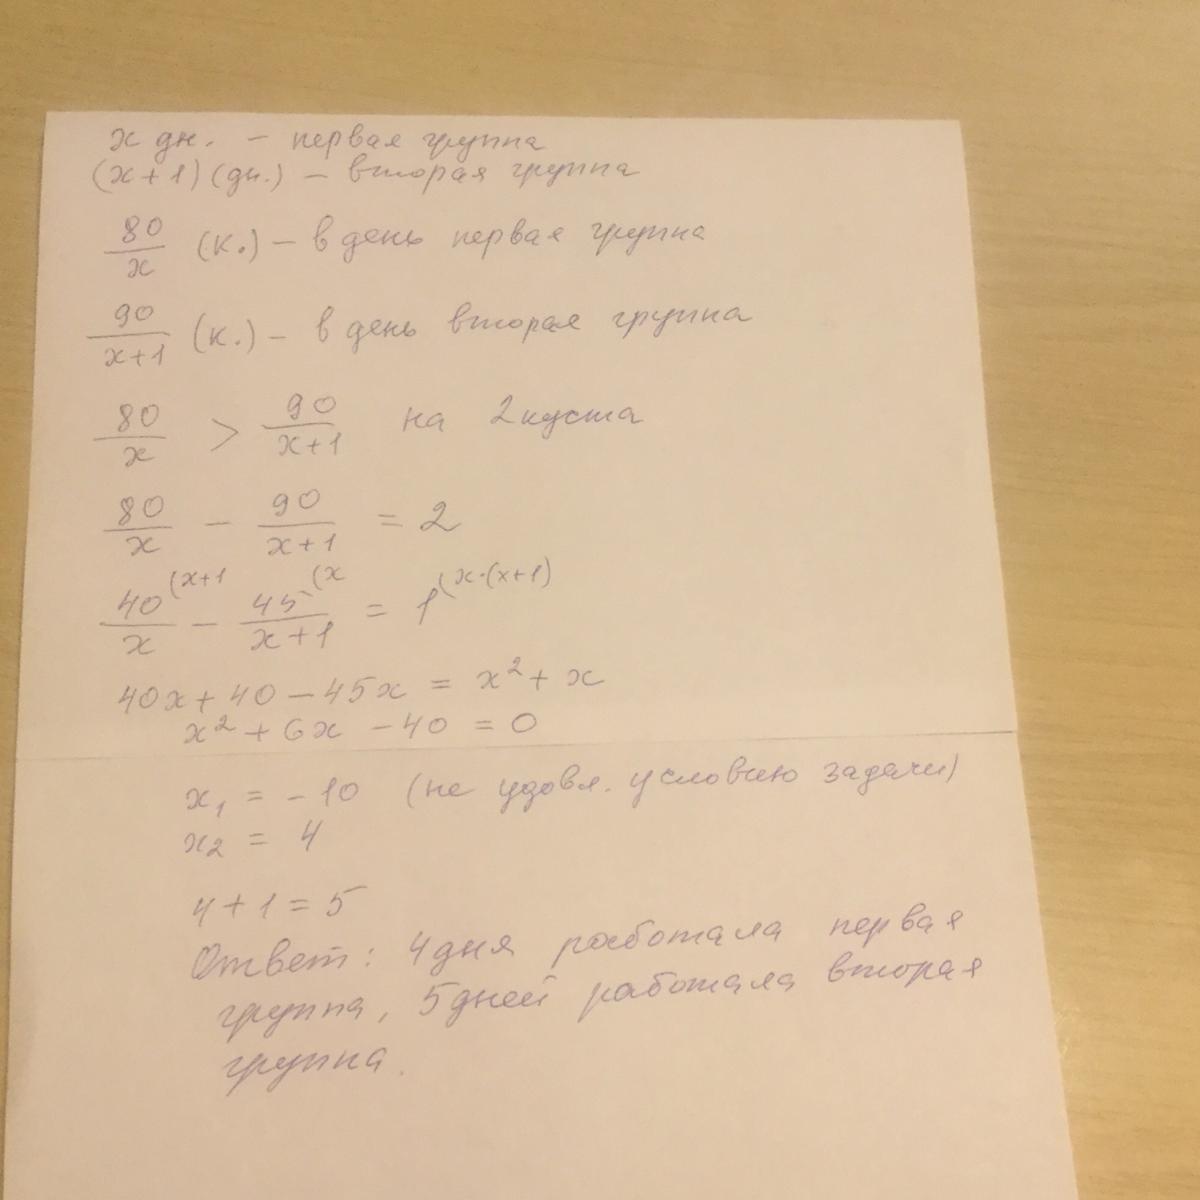 х дн. – первая группа
(х+1) (дн.) – вторая группа
80/х (к.) – в день первая группа
90/х+1 (к.) – в день вторая группа
80/х > 90/х+1 на 2 куста
80/х – 90/х+1 = 2
40/х (х+1 – 45/х+1 (х = 1 (х·(х+1)
40х + 40 – 45х = х² + х
х² + 6х – 40 = 0
х₁ = – 10 (не удовл. условию задачи)
х₂ = 4
4 + 1 = 5
Ответ: 4 дня работала первая
группа, 5 дней работала вторая
группа.